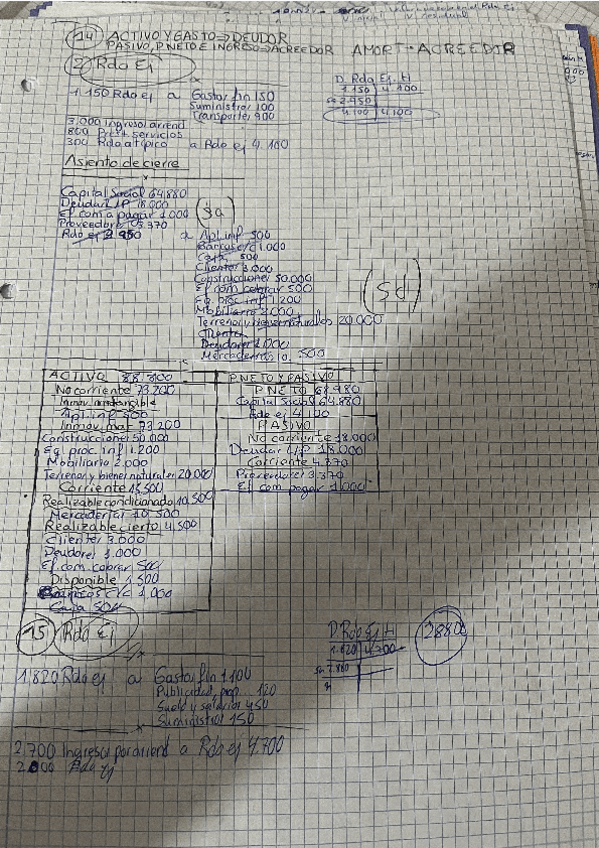 14 ACTIVO Y GASTO → DEUDOR
PASIVO, P NETO E INGRESO → ACREEDOR AMORT → ACREEDOR
2) Rdo Ej
x
D Rdo Ej. H
1.150 4.100
Sa 2.950
4.100 4.100
1.150 Rdo ej a Gastos fin 150
Suministros 100
Transportes 900
3.000 ingresos arrend
800 Prest servicios
300 Rdo atípico a Rdo ej 4.100
Asiento de cierre
x
Capital Social 64.880
Deudas L/P 18.000
Ef com a pagar 1.000 (Sa)
Proveedores
Rdo ej 2.950 a Apl. inf 500
Bancos c/c 1.000
Caja 500
Clientes 3.000
Construcciones 50.000
Ef. com. cobrar 500 (Sd)
Eq. proc inf 1.200
Mobiliario 2.000
Terrenos y bienes naturales 20.000
Deudores 1.000
Mercaderías 10.500
ACTIVO
No corriente 73.200
Apl. inf 500
Inmov. mat 73.200
Construcciones 50.000
Eq. proc. inf 1.200
Mobiliario 2.000
Terrenos y bienes naturales 20.000
Corriente
Realizable condicionado 10.500
Mercaderías 10.500
Realizable cierto 4.500
Clientes 3.000
Deudores 1.000
Ef. com. cobrar 500
Disponible 1.500
Bancos c/c 1.000
Caja 500
P NETO Y PASIVO
P NETO
Capital Social 64.880
Rdo ej 4.100
PASIVO
No corriente 18.000
Deudas L/P 18.000
Corriente 4.370
Proveedores 3.370
Ef com pagar 1.000
15 Rdo Ej
x
D Rdo Ej H
1.820 4.700
Sa 2.880
2880
1.820 Rdo ej a Gastos fin 1.100
Publicidad, prop... 120
Sueldos y salarios 450
Suministros 150
2.700 Ingresos por arrend a Rdo ej 4.700
2.000 Rdo ej